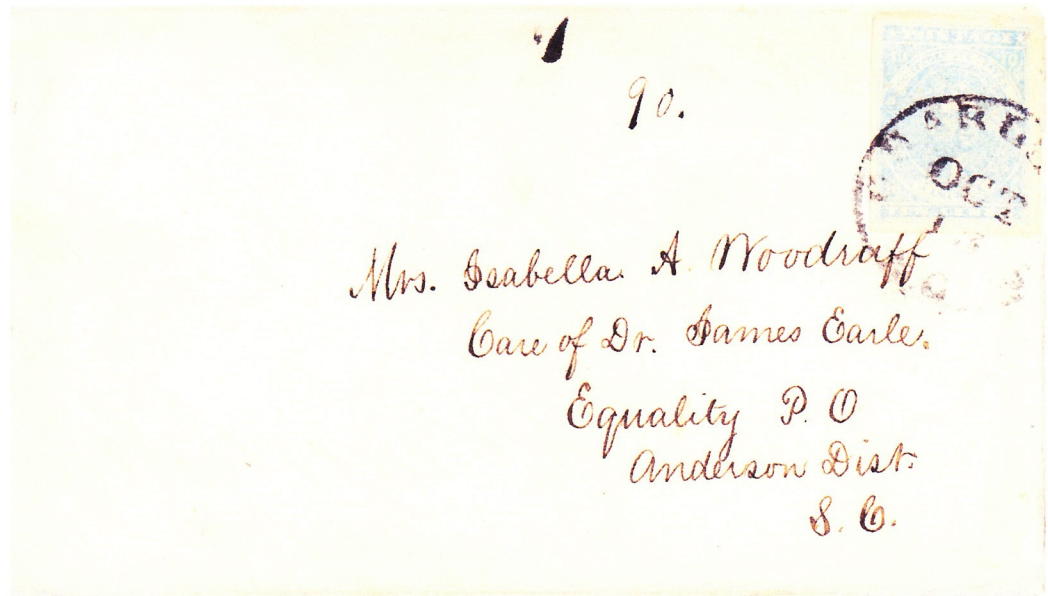 90.
OCT
Mrs. Isabella. A. Woodruff
Care of Dr. James Earle.
Equality P. O
Anderson Dist.
S. C.